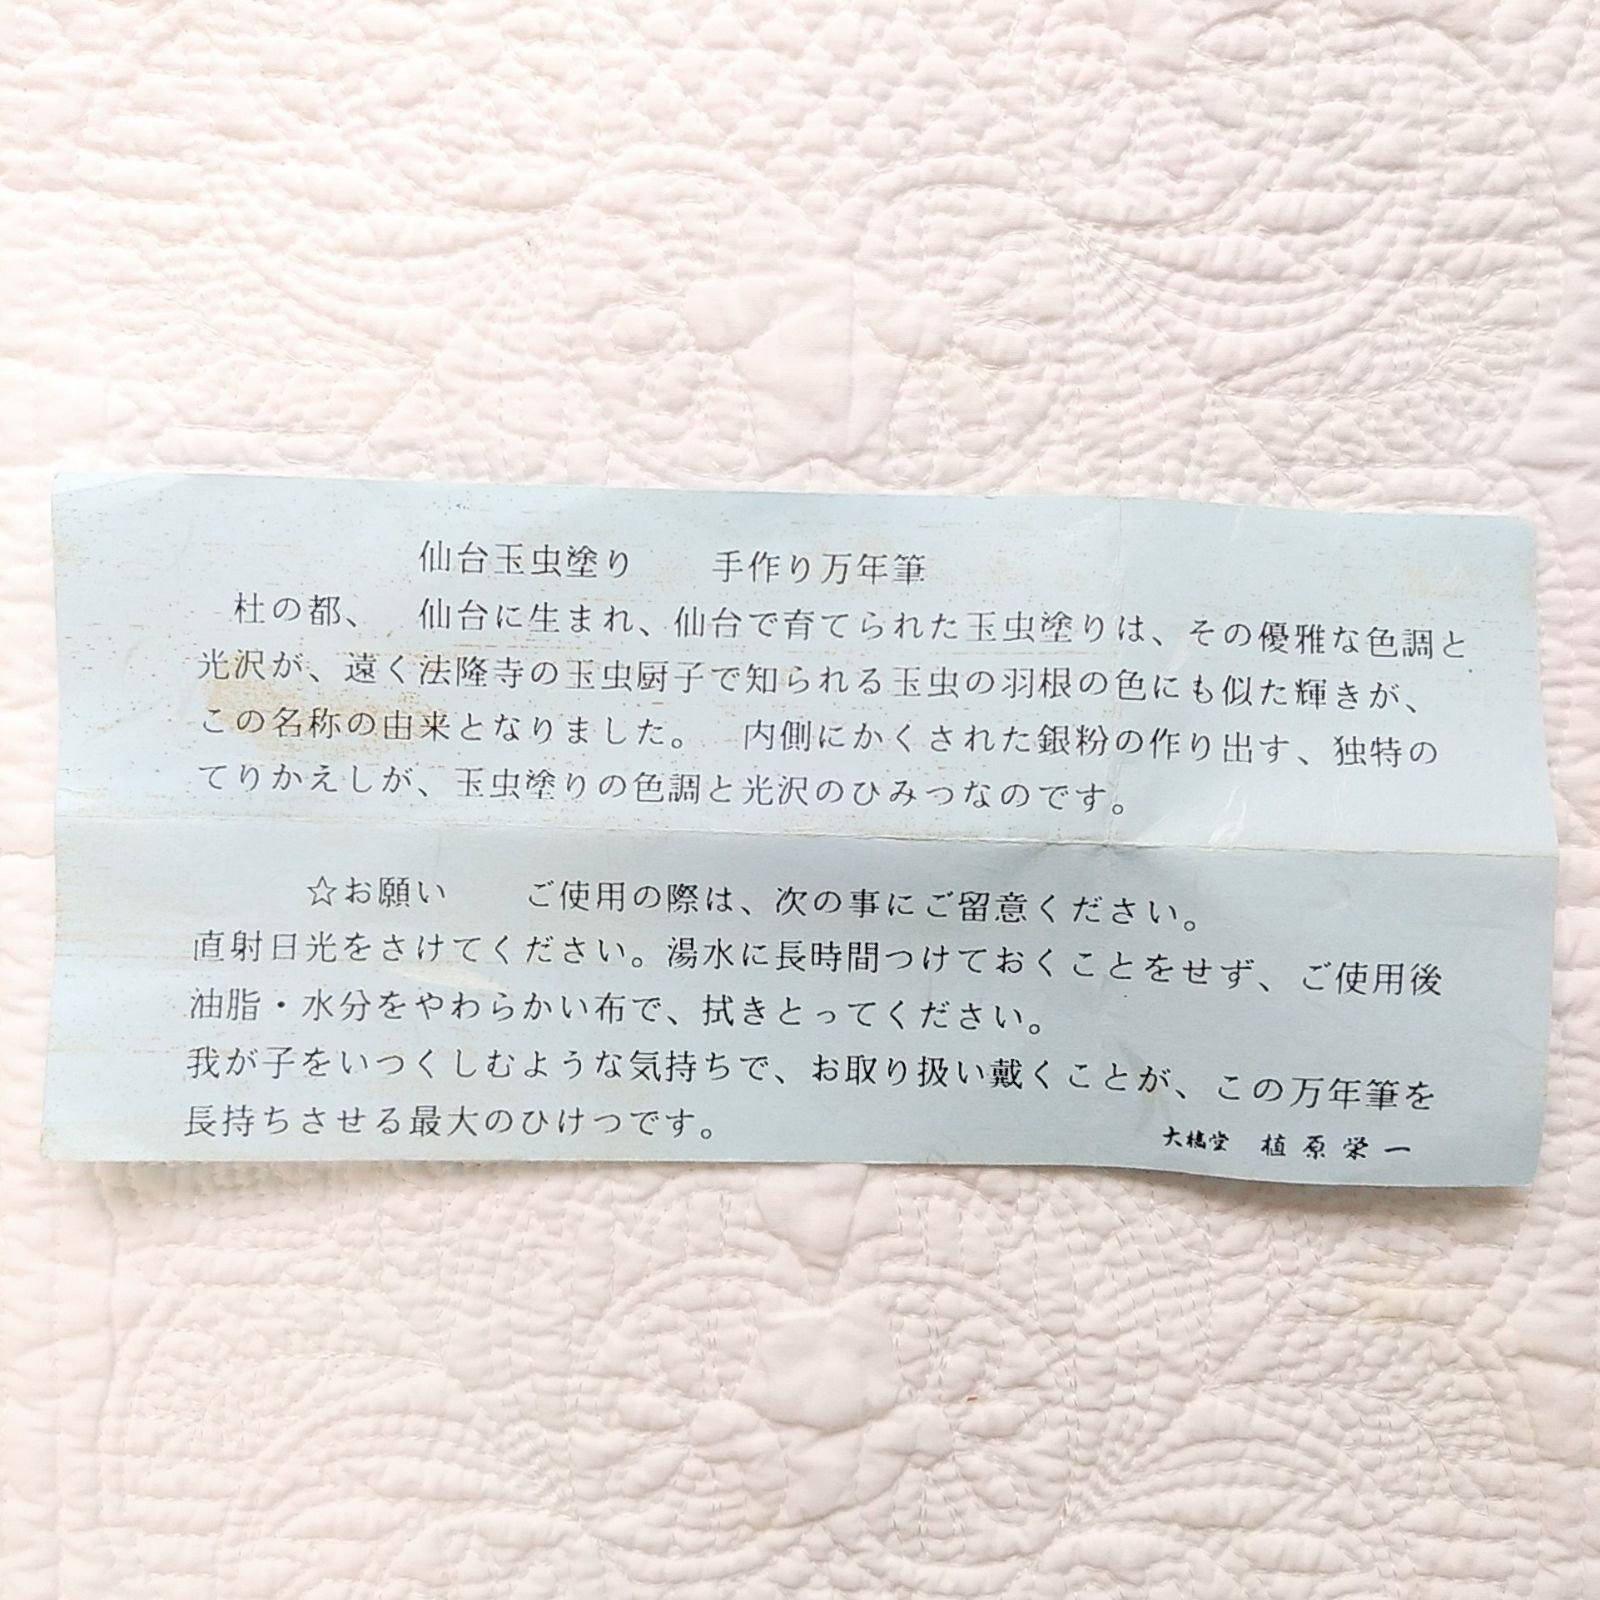 仙台玉虫塗り　　手作り万年筆
杜の都、　仙台に生まれ、仙台で育てられた玉虫塗りは、その優雅な色調と
光沢が、遠く法隆寺の玉虫厨子で知られる玉虫の羽根の色にも似た輝きが、
この名称の由来となりました。　内側にかくされた銀粉の作り出す、独特の
てりかえしが、玉虫塗りの色調と光沢のひみつなのです。
☆お願い　　ご使用の際は、次の事にご留意ください。
直射日光をさけてください。湯水に長時間つけておくことをせず、ご使用後
油脂・水分をやわらかい布で、拭きとってください。
我が子をいつくしむような気持ちで、お取り扱い戴くことが、この万年筆を
長持ちさせる最大のひけつです。
大橋堂　植原栄一